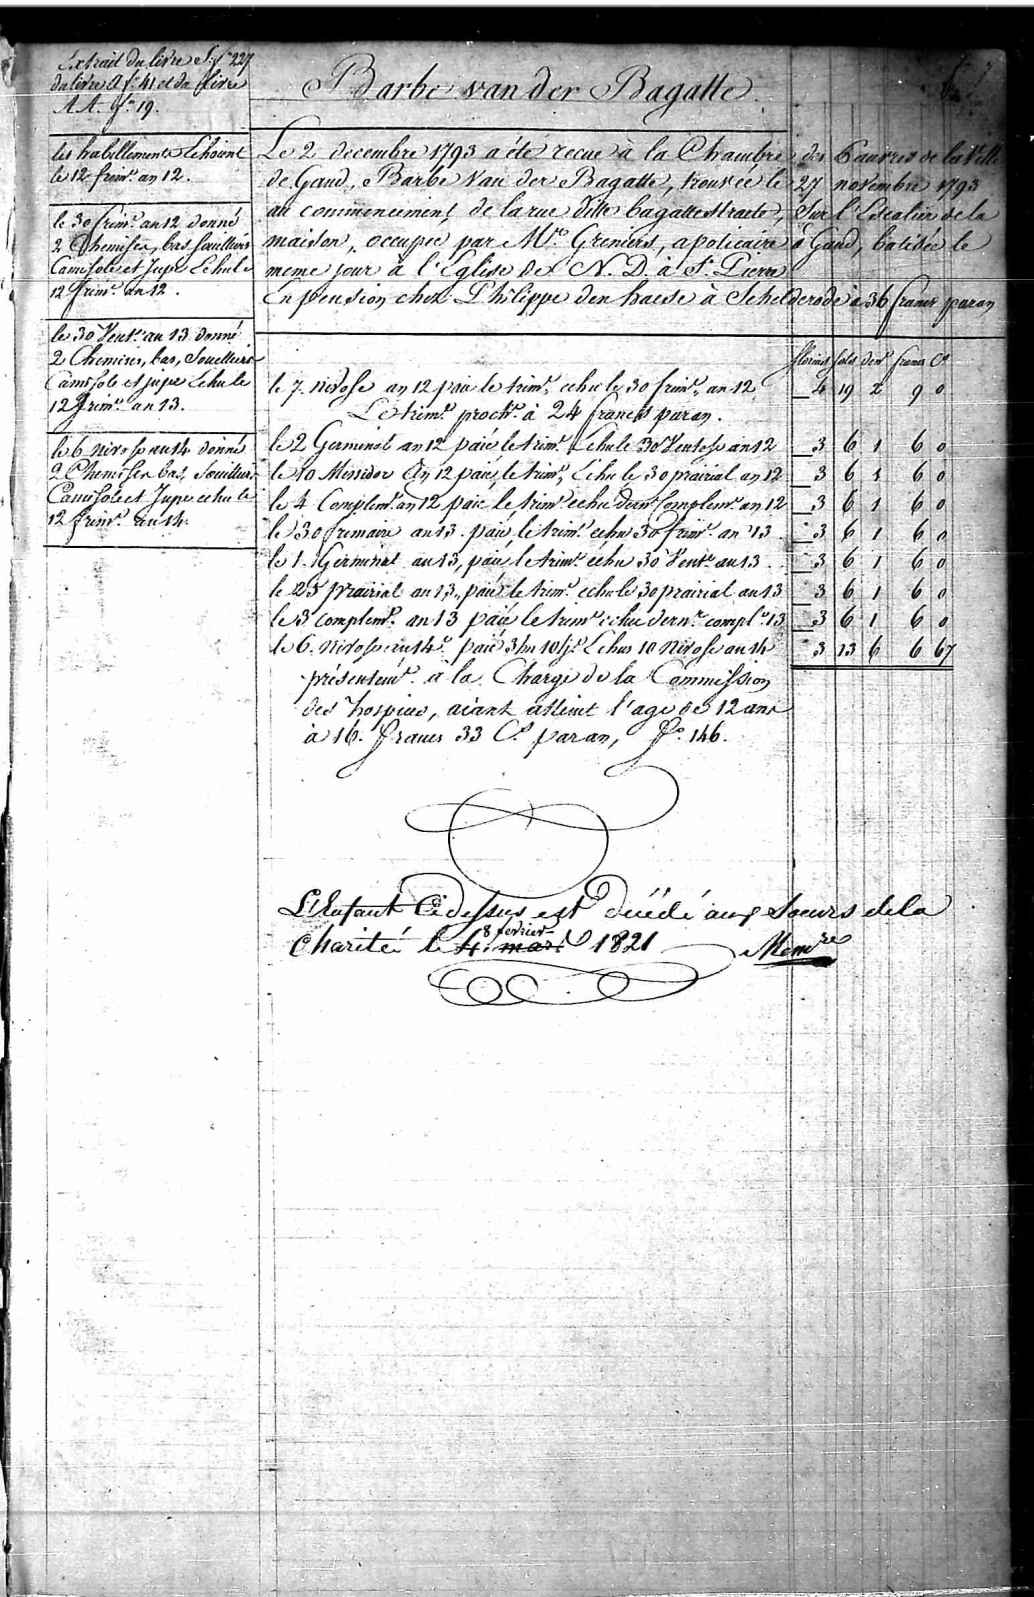 Extrait du livre S. f.° 227
du livre Q f.° 41 et du livre
A A. f.° 19.
Barbe van der Bagatte
les habillements echoient
le 12e frim.e an 12.
le 30 frim.e an 12 donné
2 Chemises, bas, souilliers
Camisole et Jupe Echu le
12 frim.e an 12.
le 30 Vent.e an 13 donné
2 Chemises, bas, Souilliers
Camisole et jupe Echu le
12 frim.e an 13.
le 6 nivose an 14 donné
2 Chemises bas, Souilliers
Camisole et Jupe echu le
12 frim.e an 14.
Le 2 decembre 1793 a été recue à la Chambre des Pauvres de la Ville
de Gand, Barbe Van der Bagatte, trouvée le 27 novembre 1793
au commencement de la rue ditte bagattestraete, Sur l'Escalier de la
maison, occupée par M.r Greniers, apoticaire à Gand, batisée le
meme jour à l'Eglise de N. D. à S.t Pierre
En pension chez Philippe den haese à Schelderode à 36 francs par an
florins sols den.s francs C.s
le 7 nivose an 12 paié le trim.e echu le 30 frim.e an 12 4 19 2 9 0
Le trim.e proch.e à 24 francs par an.
le 2 Germinal an 12 paié le trim.e Echu le 30 Ventose an 12 3 6 1 6 0
le 10 Messidor an 12 paié le trim.e Echu le 30 prairial an 12 3 6 1 6 0
le 4 Complem.e an 12 paié le trim.e echu dern.e Complem.e an 12 3 6 1 6 0
le 30 fremaire an 13 paié le trim.e echu 30 frim.e an 13 3 6 1 6 0
le 1. Germinal an 13, paié le trim.e echu 30 Vent.e an 13 3 6 1 6 0
le 25 prairial an 13, paié le trim.e echu le 30 prairial an 13 3 6 1 6 0
le 3 complem.e an 13 paié le trim.e echu dern.e compl.e 13 3 6 1 6 0
le 6. nivose an 14.e paié 3 m 10 j.s Echus 10 Nivose an 14 3 13 6 6 67
présentem.t à la Charge de la Commission
des hospices, aiant atteint l'age de 12 ans
à 16. francs 33 C.s par an, f.o 146.
L'Enfant Cidessus est décédé aux Soeurs de la
8 fevrier
Charité le 4 mars 1821 Mem.re